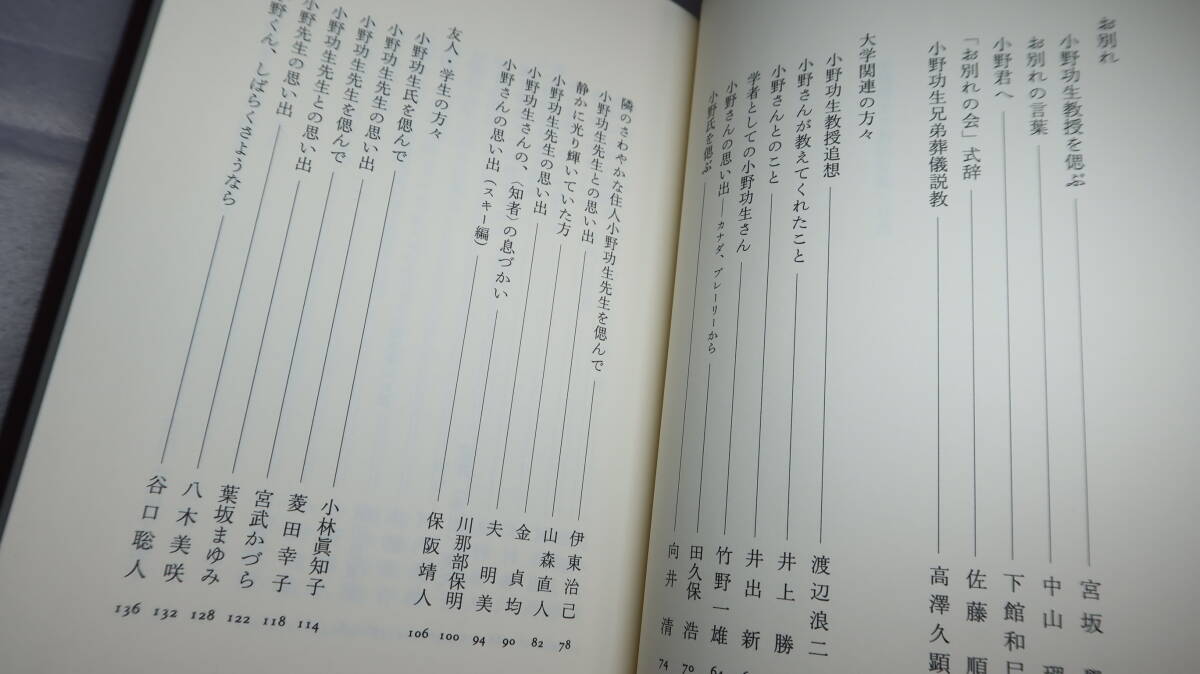 お別れ
小野功生教授を偲ぶ 宮坂
お別れの言葉 中山
小野君へ 下館和
「お別れの会」式辞 佐藤 順
小野功生兄弟葬儀説教 高澤久 顕
大学関連の方々
小野功生教授追想 渡辺浪二
小野さんが教えてくれたこと 井上 勝
小野さんとのこと 井出 新
学者としての小野功生さん 竹野一雄
小野さんの思い出——カナダ、プレーリーから 田久保 浩 70
小野氏を偲ぶ 向井 清 74
隣のさわやかな住人小野功生先生を偲んで 伊東治己 78
小野功生先生との思い出 山森直人 82
静かに光り輝いていた方 金 貞均 90
小野功生先生の思い出 夫 明美 94
小野功生さんの、〈知者〉の息づかい 川那部保明 100
小野さんの思い出（スキー編） 保阪靖人 106
友人・学生の方々
小野功生氏を偲んで 小林眞知子 114
小野功生先生の思い出 菱田幸子 118
小野功生先生を偲んで 宮武かづら 122
小野功生先生との思い出 葉坂まゆみ 128
小野先生の思い出 八木美咲 132
野くん、しばらくさようなら 谷口聡人 136